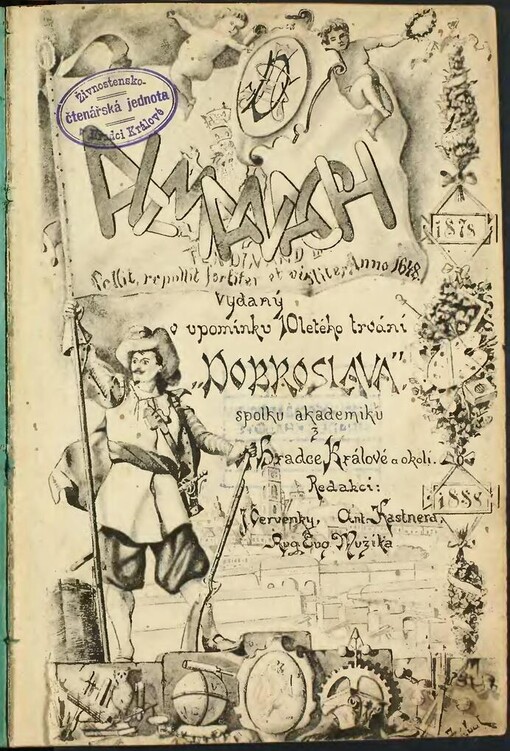 Živnostensko-
čtenářská jednota
v Hradci Králové
ALMANACH
FERDINAND II
Pellit, repellit fortiter et viriliter, Anno 1648.
1878
Vydaný
v upomínku 10letého trvání
„DOBROSLAVA“,
spolku akademiků
z
Hradce Králové a okolí.
Redakcí:
1888
J. Červenky, Ant. Kastnera,
Aug. Eug. Mužíka